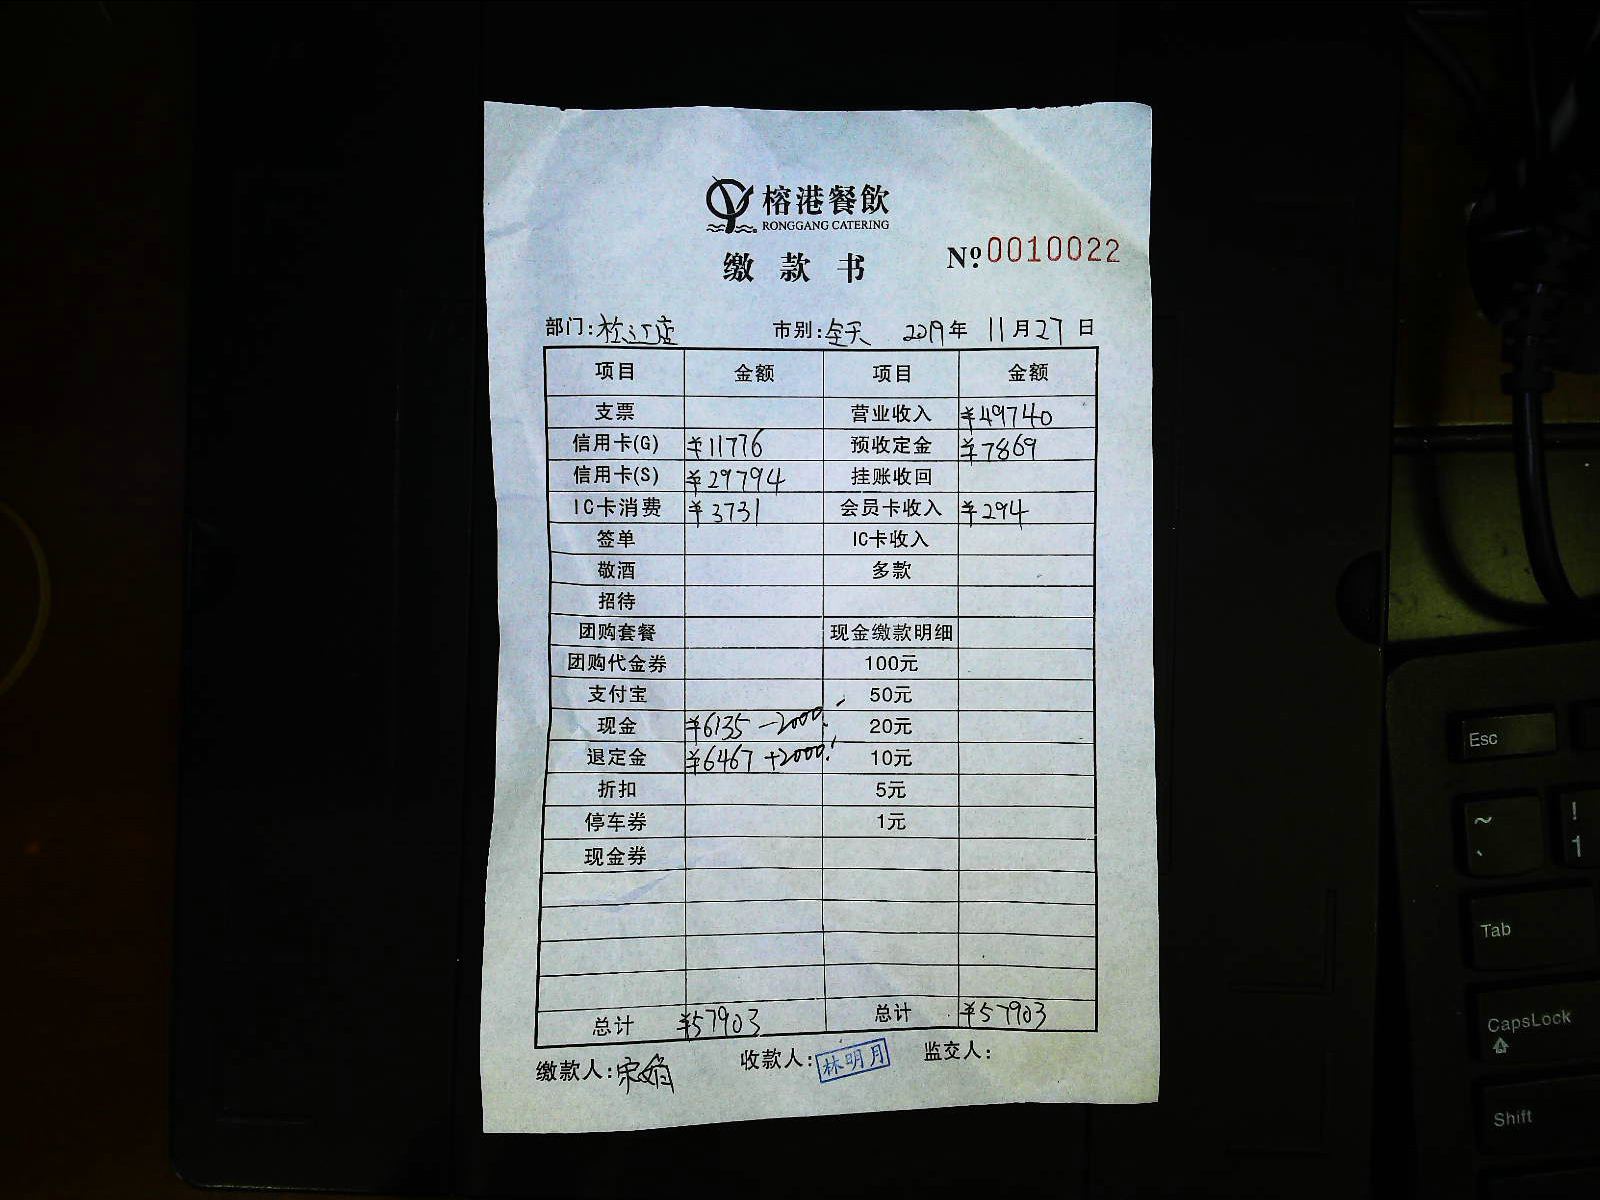 榕港餐飲
RONGGANG CATERING
缴 款 书 Nº 0010022
部门:松江店 市别:全天 2019年 11月27日
项目 金额 项目 金额
支票 营业收入 ¥49740
信用卡(G) ¥11776 预收定金 ¥7869
信用卡(S) ¥29794 挂账收回
IC卡消费 ¥3731 会员卡收入 ¥294
签单 IC卡收入
敬酒 多款
招待
团购套餐 现金缴款明细
团购代金券 100元
支付宝 50元
现金 ¥6135 -2000. 20元
退定金 ¥6467 +2000. 10元
折扣 5元
停车券 1元
现金券
总计 ¥57903 总计 ¥57903
缴款人:宋娟 收款人:林明月 监交人:
Esc
~ !
` 1
Tab
CapsLock
Shift